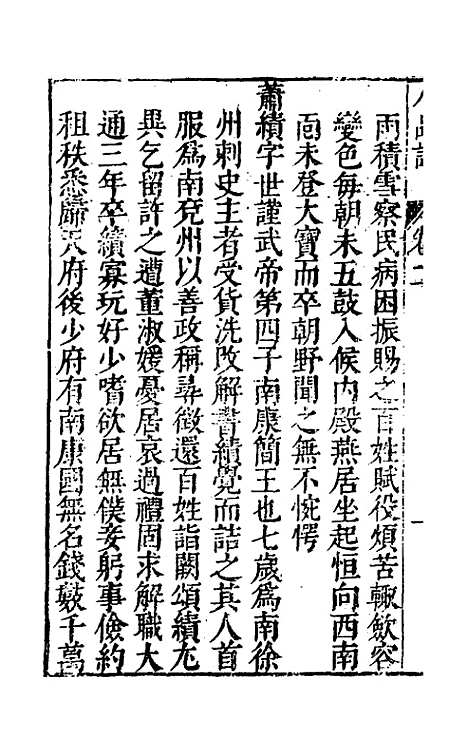 卷二
雨積雪察民病困振賜之百姓賦役煩苦輙歛容
變色每朝未五鼓入候内殿燕居坐起恒向西南
面未登大寶而卒朝野聞之無不惋愕
蕭績字世謹武帝第四子南康簡王也七歲爲南徐
州刺史主者受貨洗改解書績覺而詰之其人首
服爲南兖州以善政稱尋徵還百姓詣闕頌績尤
異乞留許之遭董淑媛憂居哀過禮固求解職大
通三年卒績寡玩好少嗜欲居無僕妾躬事儉約
租秩悉歸天府後少府有南康國無名錢數千萬